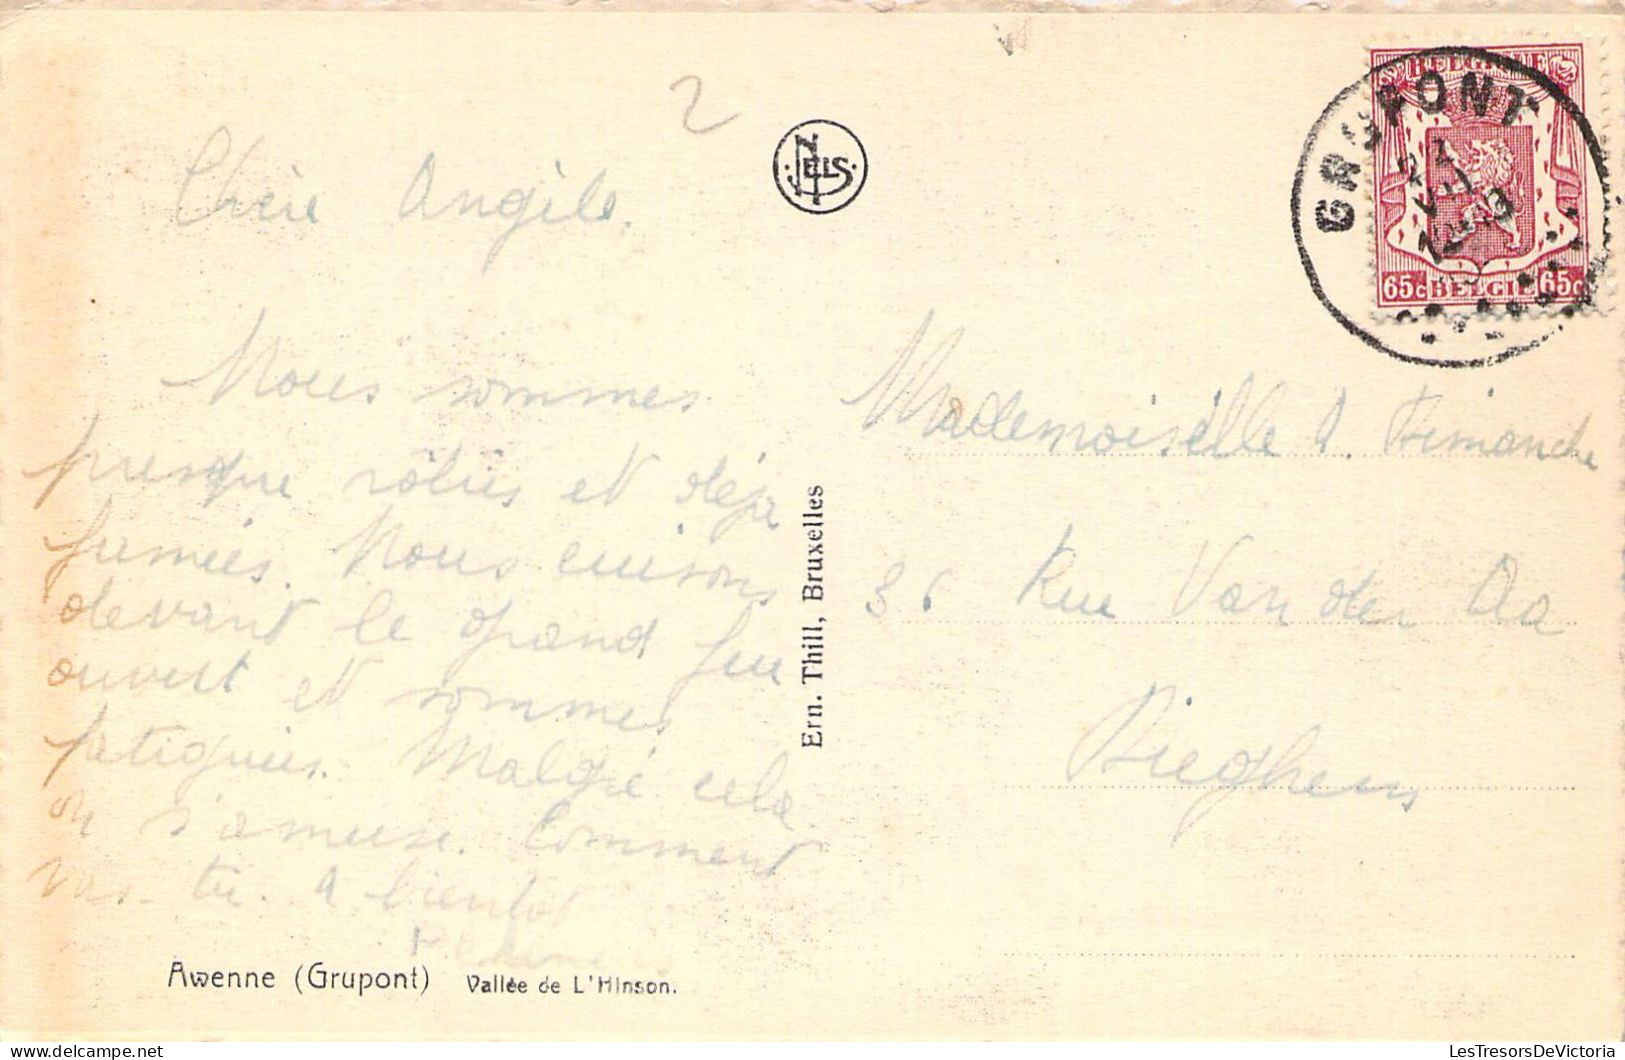 2
NELS
GRUPONT
BELGIQUE
65c BELGIE 65c
Chère Angèle.
Nous sommes
presque rôties et déja
fumées. Nous cuisons
devant le grand feu
ouvert et sommes
fatiguées. Malgré cela
on s'amuse. Comment
vas-tu. A bientot
Awenne (Grupont) Vallée de L'Hinson.
Ern. Thill, Bruxelles
Mademoiselle A. Dimanche
36 Rue Van der Aa
Bieghem
www.LesTresorsDeVictoria.com
© LesTresorsDeVictoria